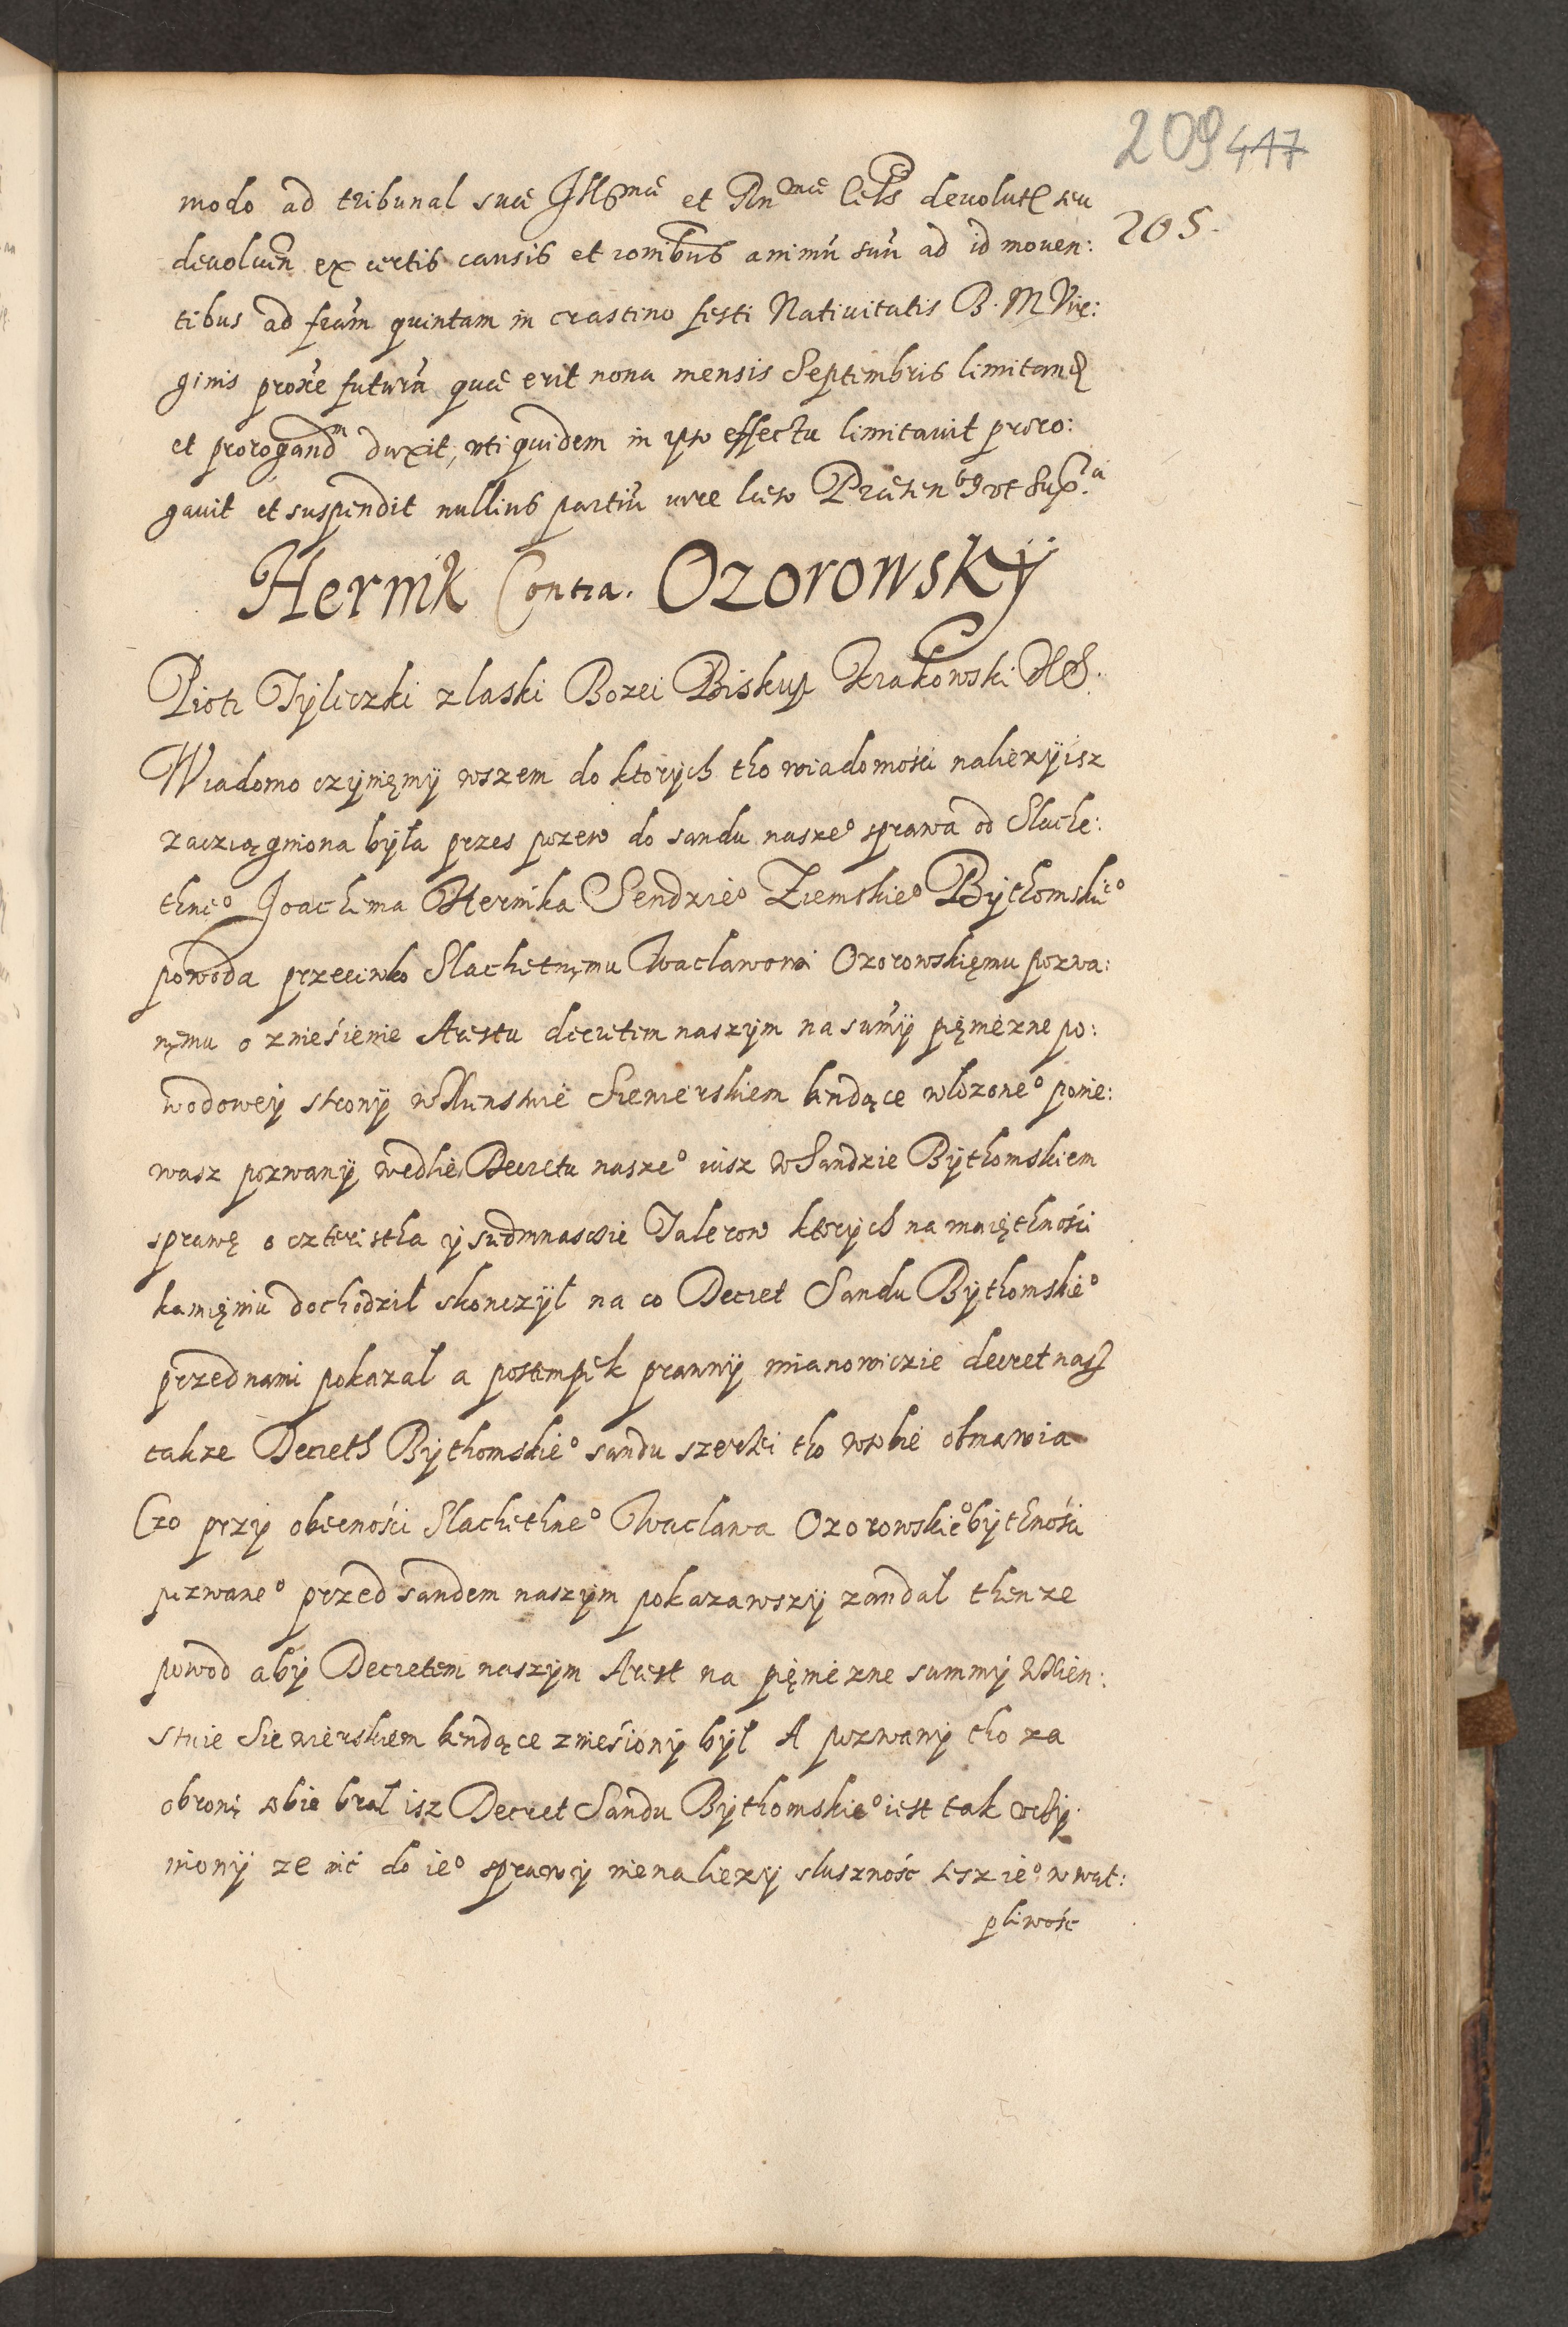 209 447
205.
modo ad tribunal suæ Illsmæ et Rnmæ Cels devolut seu
devolven ex certis causis et ronibus animū suū ad id moven:
tibus ad feriam quintam in crastino festi Nativitatis B. M Vir:
ginis proxe futurā quæ erit nona mensis Septembris limitand
et prorogandm duxit, uti quidem in ipso effectu limitavit proro:
gavit et suspendit nullius partiū iure læso Præsenbg ut Supa.
Hernik Contra. Ozorowskÿ
Piotr Tÿliczki z laski Bozei Biskup Krakowski XS.
Wiadomo czÿnięmÿ wszem do ktorÿch tho wiadomości należÿ isz
zacziągniona bÿła przes pozew do sandu naszeo sprawa od Slache:
thneo Joachima Hernika Sendzieo Ziemskieo Bÿthomskieo
powoda przeciwko Slachetnęmu Waclawowi Ozorowskięmu pozwa:
nęmu o zniesienie Arestu decretem naszÿm na sum̄ÿ pięniezne po:
wodoweÿ stronÿ w Xienstwie Siewierskiem bendące wlozoneo ponie:
wasz pozwanÿ wedlie Decretu naszeo iusz w Sandzie Bÿthomskiem
sprawę o czteristha ÿ siedmnascie Talerow ktorÿch na maięthności
kamięniu dochodził skonczÿł na co Decret Sandu Bÿthomskieo
przed nami pokazał a postempek prawnÿ mianowiczie decret nasz
takze Decreth Bÿthomskieo sandu szerzei tho w sobie obmawia
Czo przÿ obecności Slachethneo Waclawa Ozorowskieo bÿthności
pozwaneo przed sandem naszÿm pokazawszÿ zandał thenze
powod abÿ Decretem naszÿm Arest na pięniezne summÿ w Xien:
stwie Siewierskiem bendące zniesionÿ bÿł A pozwanÿ tho za
obronę sobie brał isz Decret Sandu Bÿthomskieo iest tak uczÿ
nionÿ ze nic do ieo sprawÿ nienaliezÿ slusznośc tesz ieo w wąt:
pliwośc